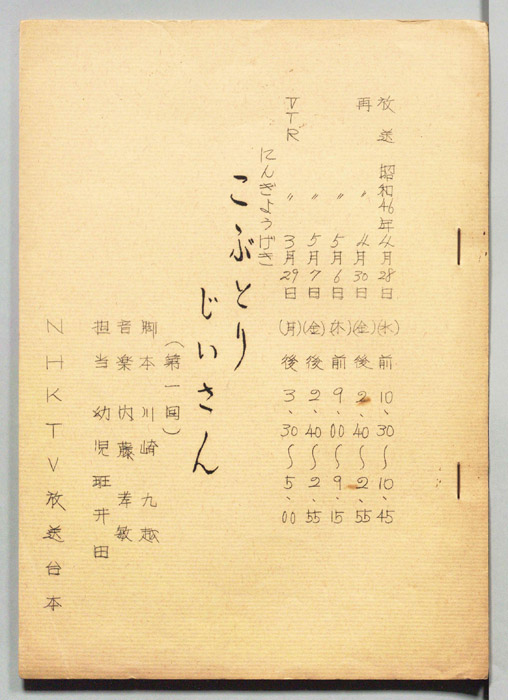 放送 昭和46年4月28日 (水) 前 10、30〜10、45
再 〃 4月30日 (金) 後 2、40〜2、55
〃 5月6日 (木) 前 9、00〜9、15
〃 5月7日 (金) 後 2、40〜2、55
VTR 〃 3月29日 (月) 後 3、30〜5、00
にんぎょうげき
こぶとり
じいさん
(第一回)
脚本 川崎 九越
音楽 内藤 孝敏
担当 幼児班 井田
NHKTV放送台本